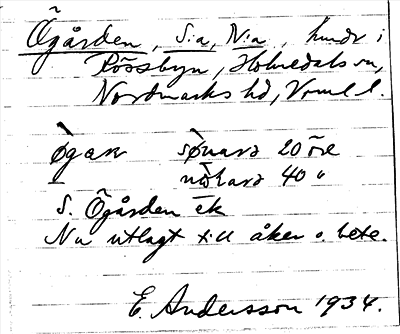 Ögården, S:a, N:a, hmdr i
Rössbyn, Holmedals sn,
Nordmarks hd, Vrml l.
øgaṛn sø̀narə 20 öre
nòḷarə 40 "
S. Ögården ek
Nu utlagt till åker o. bete.
E. Andersson 1934.